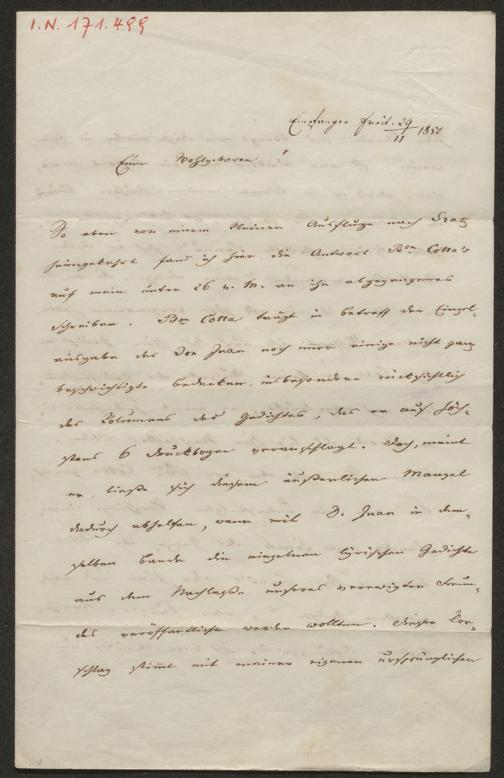 I.N. 171.499
Empfangen Freit. 29/11 1850
Euer Wohlgeboren!
So eben von einem kleinen Ausfluge nach Gratz
heimgekehrt fand ich hier die Antwort Bon Cotta's
auf mein unter 26 v. M. an ihn abgegangenes
Schreiben. Bon Cotta trägt in betreff der Einzel-
ausgabe des Don Juan noch immer einige nicht ganz
beschwichtigte Bedenken, insbesondere rücksichtlich
des Volumens des Gedichtes, das er auf höch-
stens 6 Druckbogen veranschlagt. Doch, meint
er, ließe sich diesem äußerlichen Mangel
dadurch abhelfen, wenn mit D. Juan in dem-
selben Bande die einzelnen lyrischen Gedichte
aus dem Nachlaße unseres verewigten Freun-
des veröffentlicht werden wollten. Dieser Vor-
schlag stimt mit meiner eigenen ursprünglichen